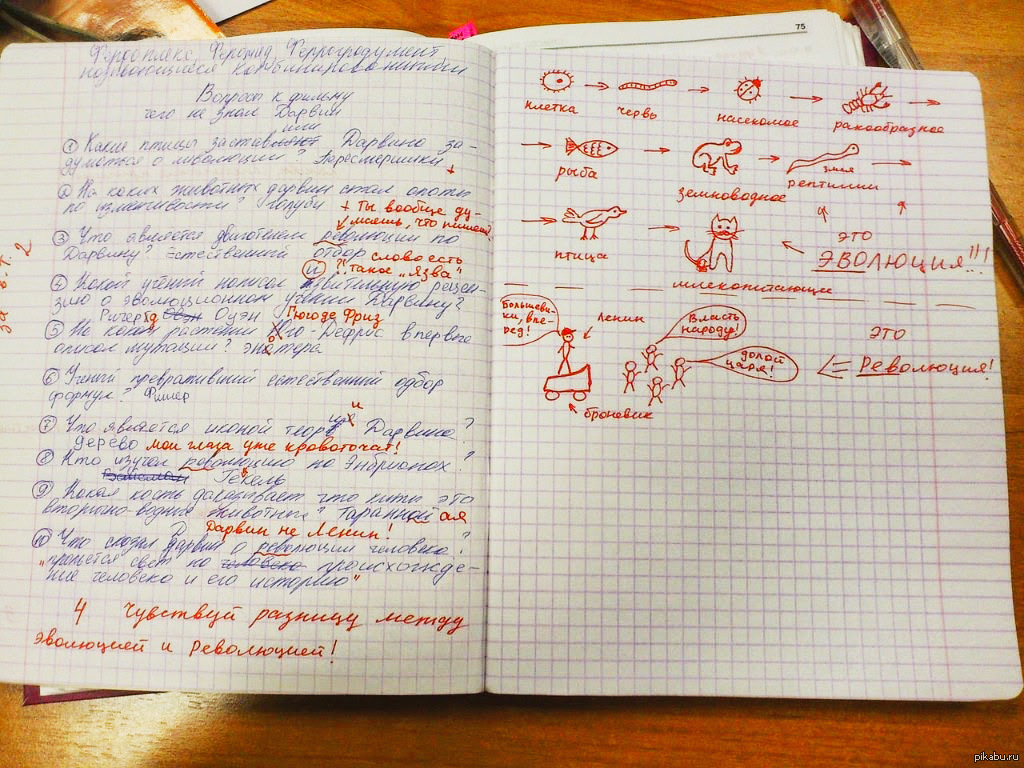 75
Вопросы к фильму
чего не знал Дарвин
① Какие птицы заставляют или Дарвина за-
думаться о революции? Пересмешники +
② На каких животных дарвин стал опыты
по изменчивости? голуби + Ты вообще ду-
маешь, что пишешь?
③ Что является двигателем революции по
Дарвину? Естественный отбор слово есть
и ?! такое „язва"
④ Какой учёный написал язвительную рецен-
зию о эволюционном учении Дарвину?
Ричард Оуэн Гюго де Фриз
⑤ На каком растении Юго-Дефрис впервые
описал мутации? энотера
⑥ Учёный превративший естественный отбор
формулу? Фишер
⑦ Что является иконой теории Дарвина?
дерево мои глаза уже кровоточат!
⑧ Кто изучал революцию по Энбрионах?
Геккель
⑨ Какая кость доказывает что киты это
вторично-водные животные? Таранной ая
Дарвин не Ленин!
⑩ Что сказал Дарвин о революции человека?
„прольётся свет на человека происхожде-
ние человека и его историю"
4 Чувствуй разницу между
эволюцией и революцией!
за в.т. 2
клетка червь насекомое ракообразное
рыба земноводное змея рептилии
птица млекопитающее
это
эволюция!!!
Большеви-
ки, впе-
ред!
Ленин
Власть
народу!
долой
царя!
броневик
это
Революция!
pikabu.ru